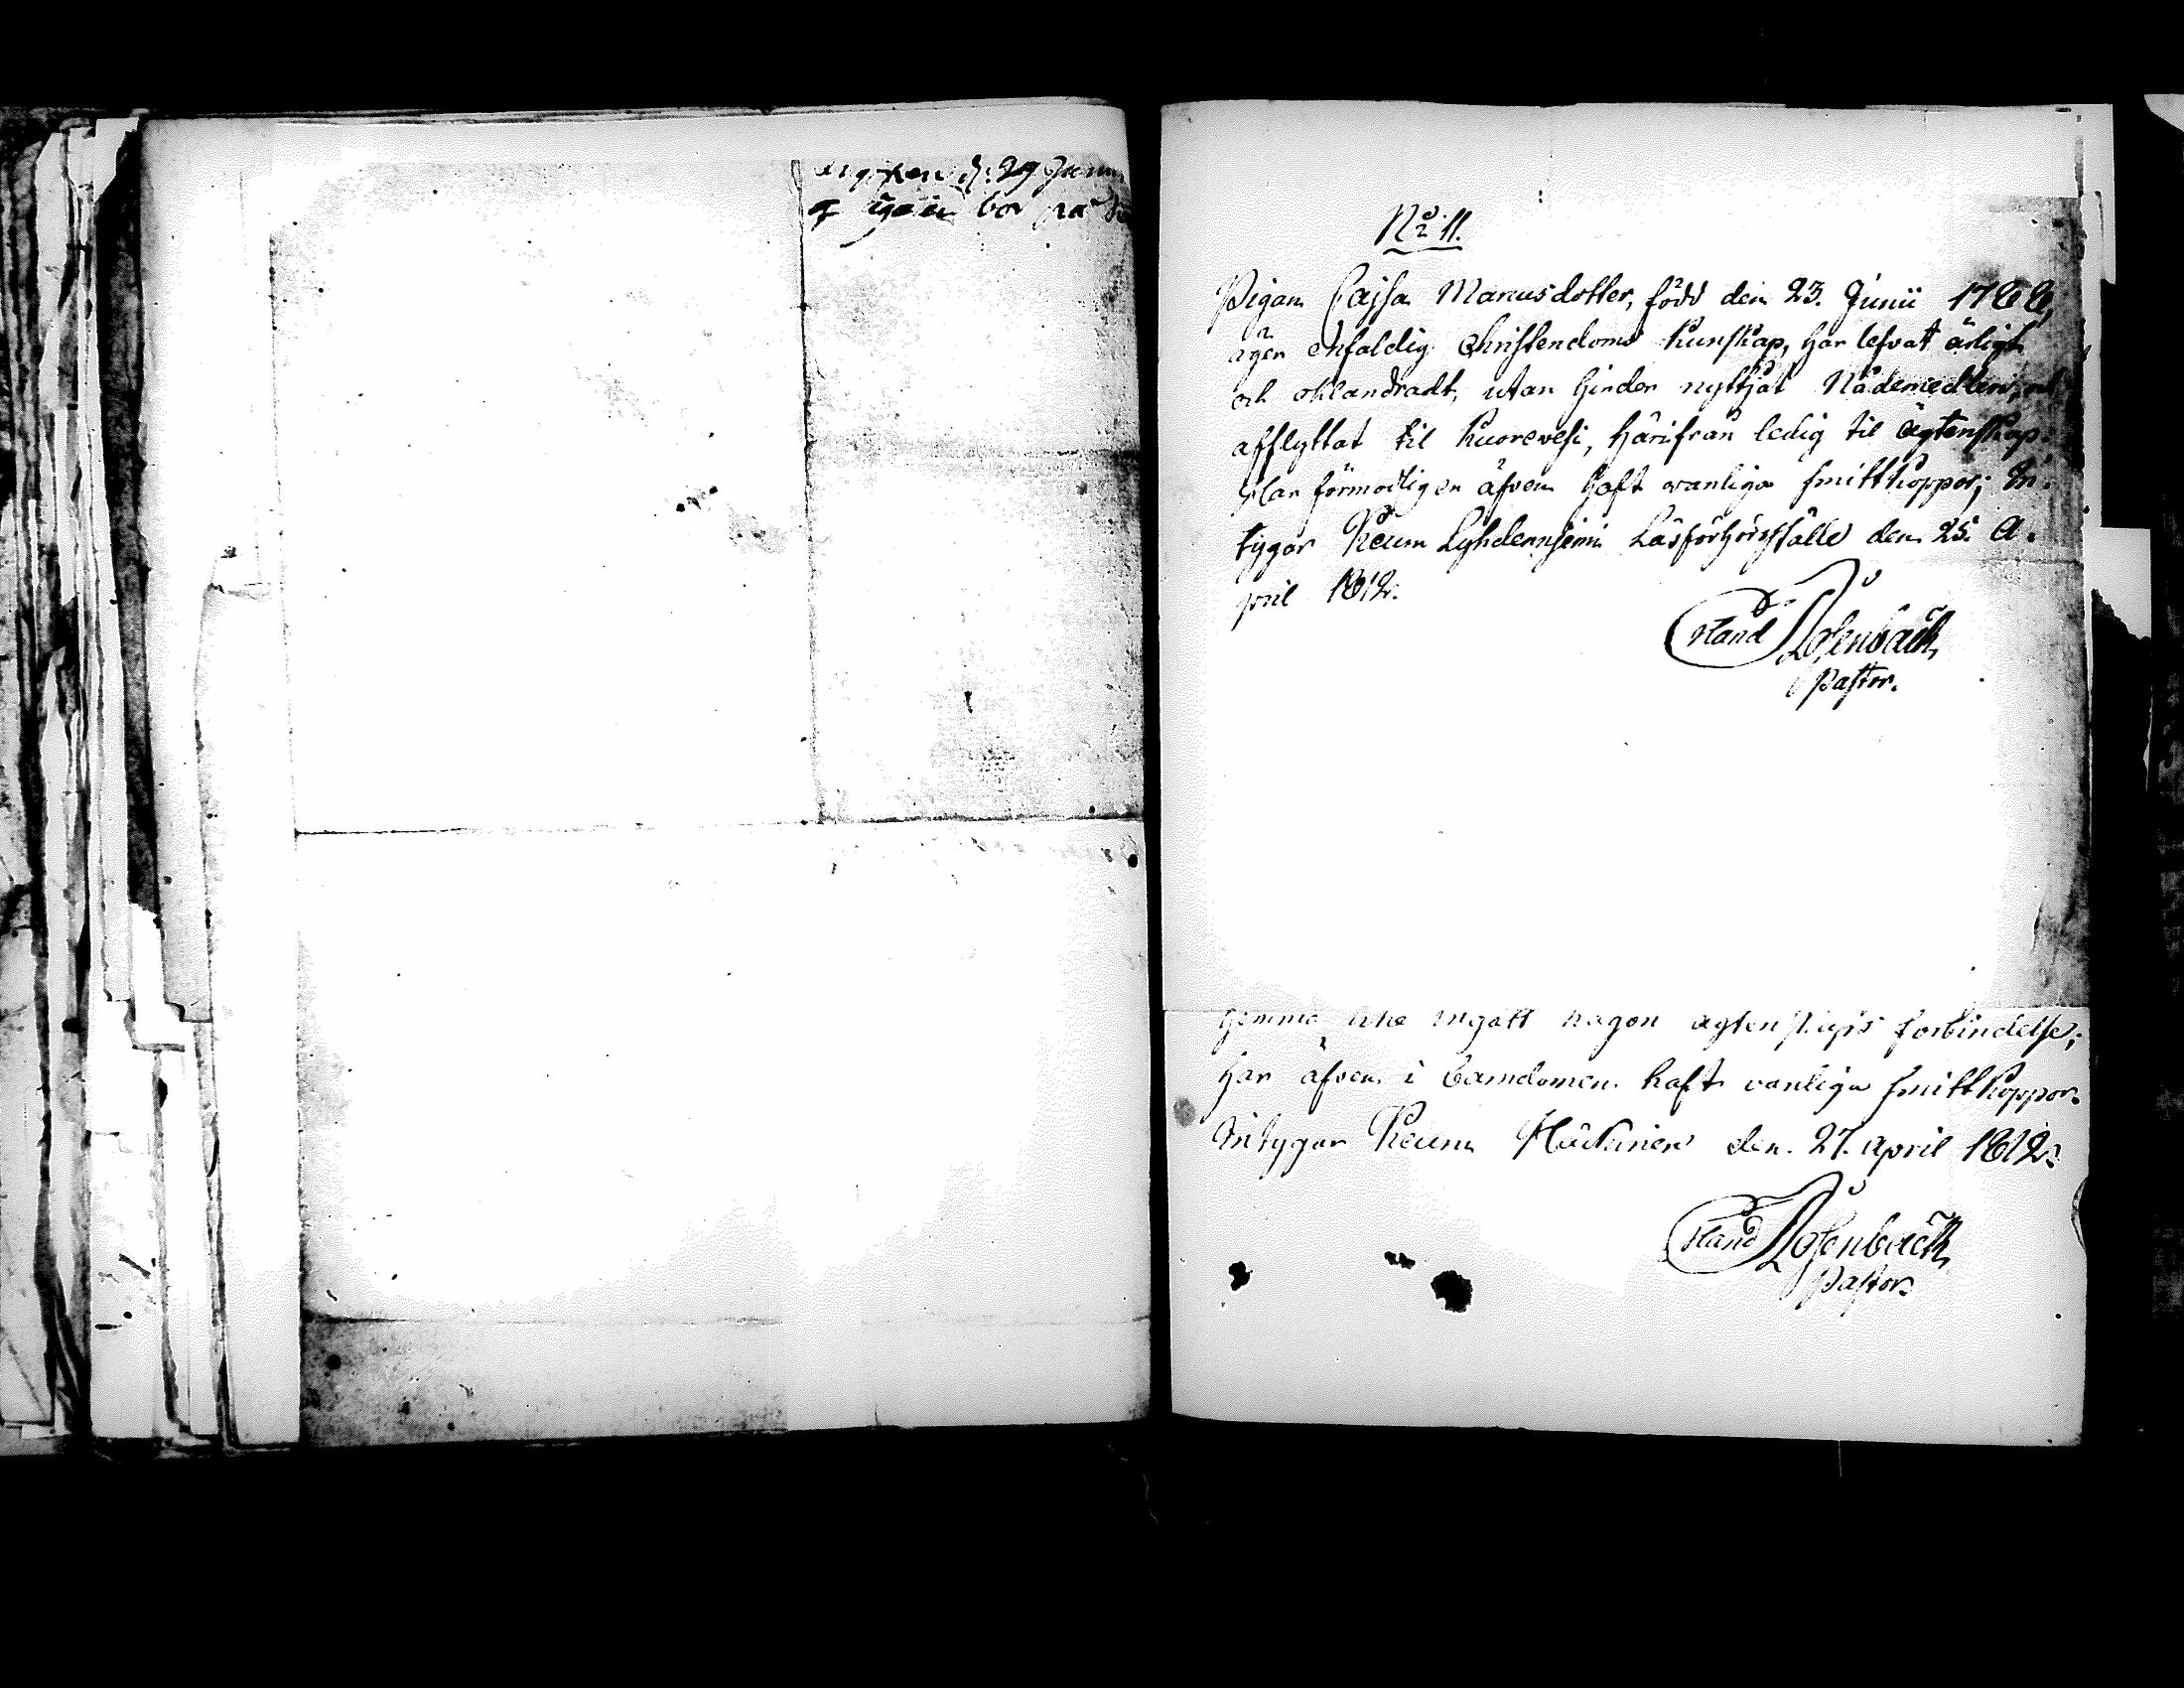 d. 29 Janu
bor på
No 11.
Pigan Cajsa Marcusdotter, född den 23. Junii 1788,
äger enfaldig Christendoms kunskap, har lefvat ärligt
och oklandradt, utan hinder nyttjat Nådemedlen,
afflyttat til Kuorevesi, härifrån ledig til ägtenskap.
Har förmodligen äfven haft vanliga smittkoppor; In-
tygar Keuru Lyhdenniemi Läsförhörsställe den 25. A-
pril 1812.
Pastor.
hemma icke ingått någon ägtenskaps förbindelse;
har äfven i barndomen haft vanliga smittkoppor.
Intygar Keuru den 27. April 1812.
Pastor